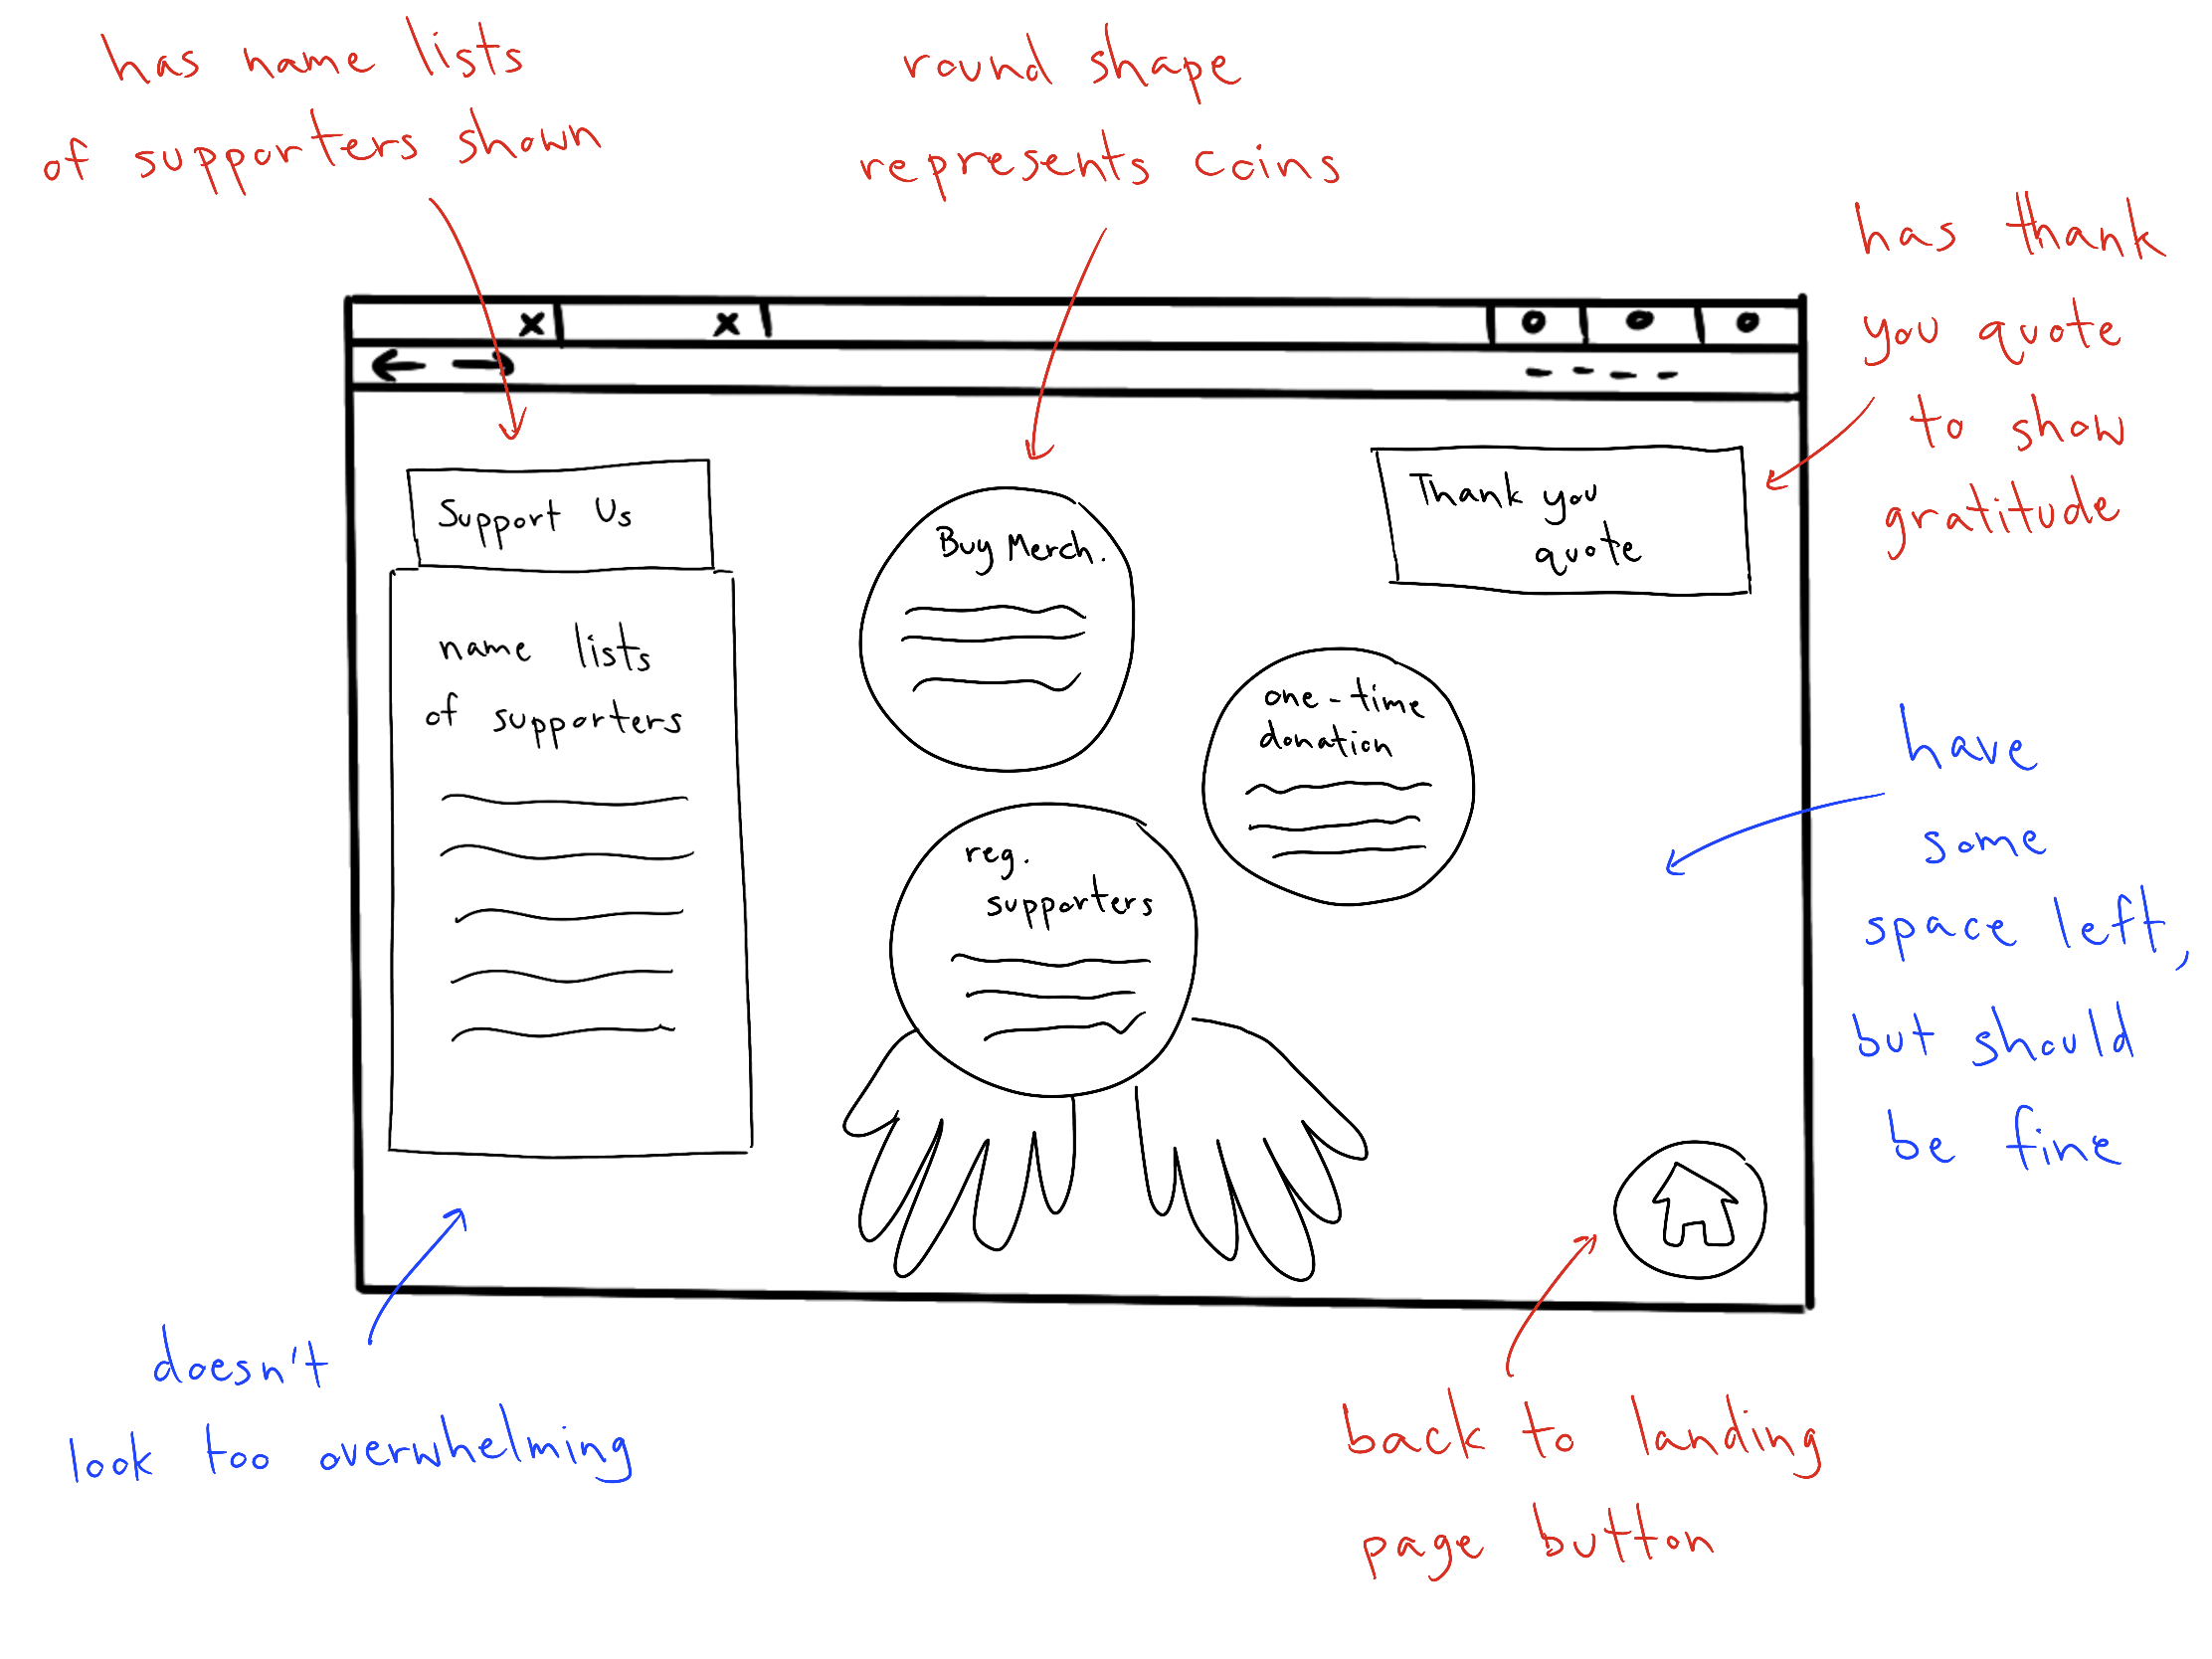 has name lists
of supporters shown
round shape
represents coins
has thank
you quote
to show
gratitude
x
x
Support Us
name lists
of supporters
Buy Merch.
one-time
donation
reg.
supporters
Thank you
quote
have
some
space left,
but should
be fine
doesn't
look too overwhelming
back to landing
page button